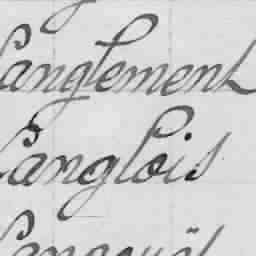 Langlement
Langlois